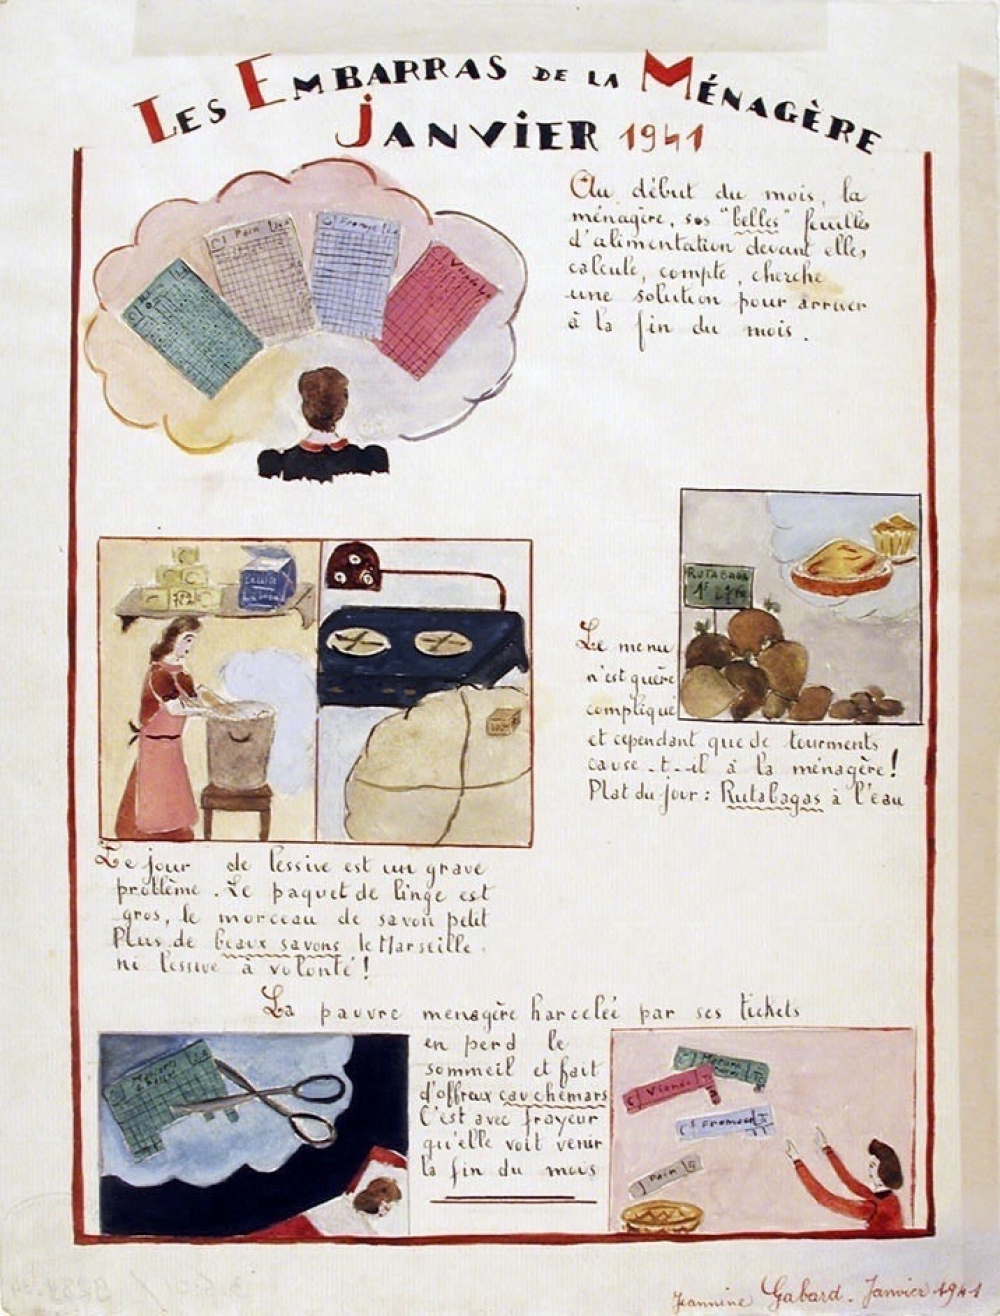 LES EMBARRAS DE LA MÉNAGÈRE
JANVIER 1941
Au début du mois, la
ménagère, ses "belles" feuilles
d'alimentation devant elles
calcule, compte, cherche
une solution pour arriver
à la fin du mois.
Pain
Fromage
Viande
RUTABAGA
1F
72%
Le menu
n'est guère
compliqué
et cependant que de tourments
cause-t-il à la ménagère!
Plat du jour: Rutabagas à l'eau
Le jour de lessive est un grave
problème. Le paquet de linge est
gros, le morceau de savon petit
Plus de beaux savons de Marseille.
ni lessive à volonté!
La pauvre menagère harcelée par ses tickets
en perd le
sommeil et fait
d'affreux cauchemars
C'est avec frayeur
qu'elle voit venir
la fin du mois
Viande
Fromage
Pain
Jeannine Gabard. Janvier 1941